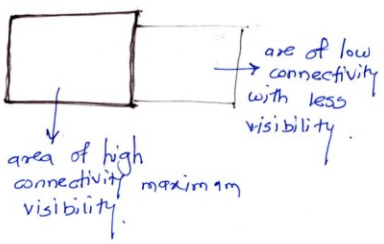 are of low
connectivity
with less
visibility.
area of high
connectivity maximam
visibility.